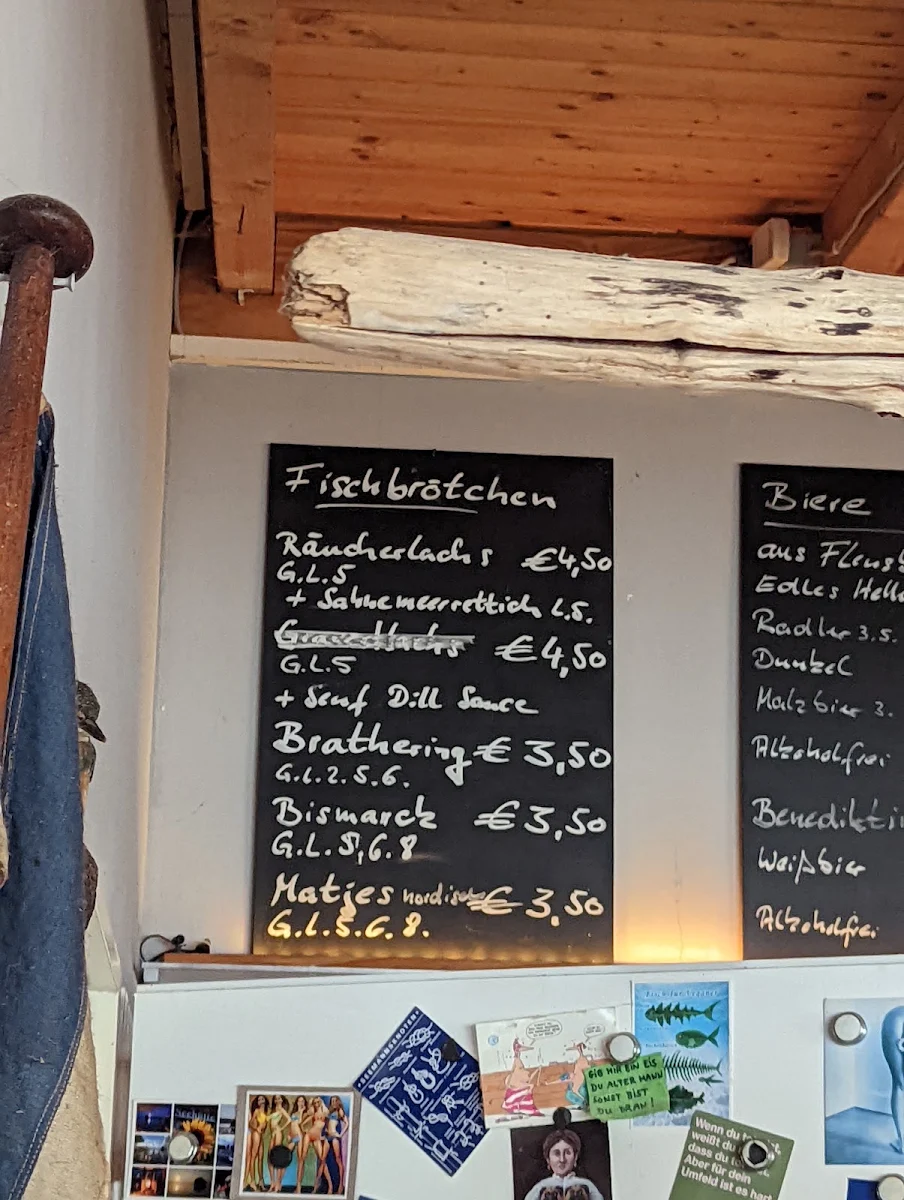 Fischbrötchen
Räucherlachs €4,50
G.L.5
+ Sahnemeerrettich L.5.
Gravedlachs €4,50
G.L.5
+ Senf Dill Sauce
Brathering € 3,50
G.L.2.5.6.
Bismarck €3,50
G.L.5,6.8
Matjes nordisch € 3,50
G.L.5.6.8.
Biere
aus Flensb
Edles Helle
Radler 3.5.
Dunkel
Malzbier 3.
Alkoholfrei
Benediktin
Weißbier
Alkoholfrei
SEEMANNSKNOTEN
GIB MIR EIN EIS
DU ALTER MANN
SONST BIST
DU DRAN!
Wenn du
weißt du
dass du
Aber für dein
Umfeld ist es hart